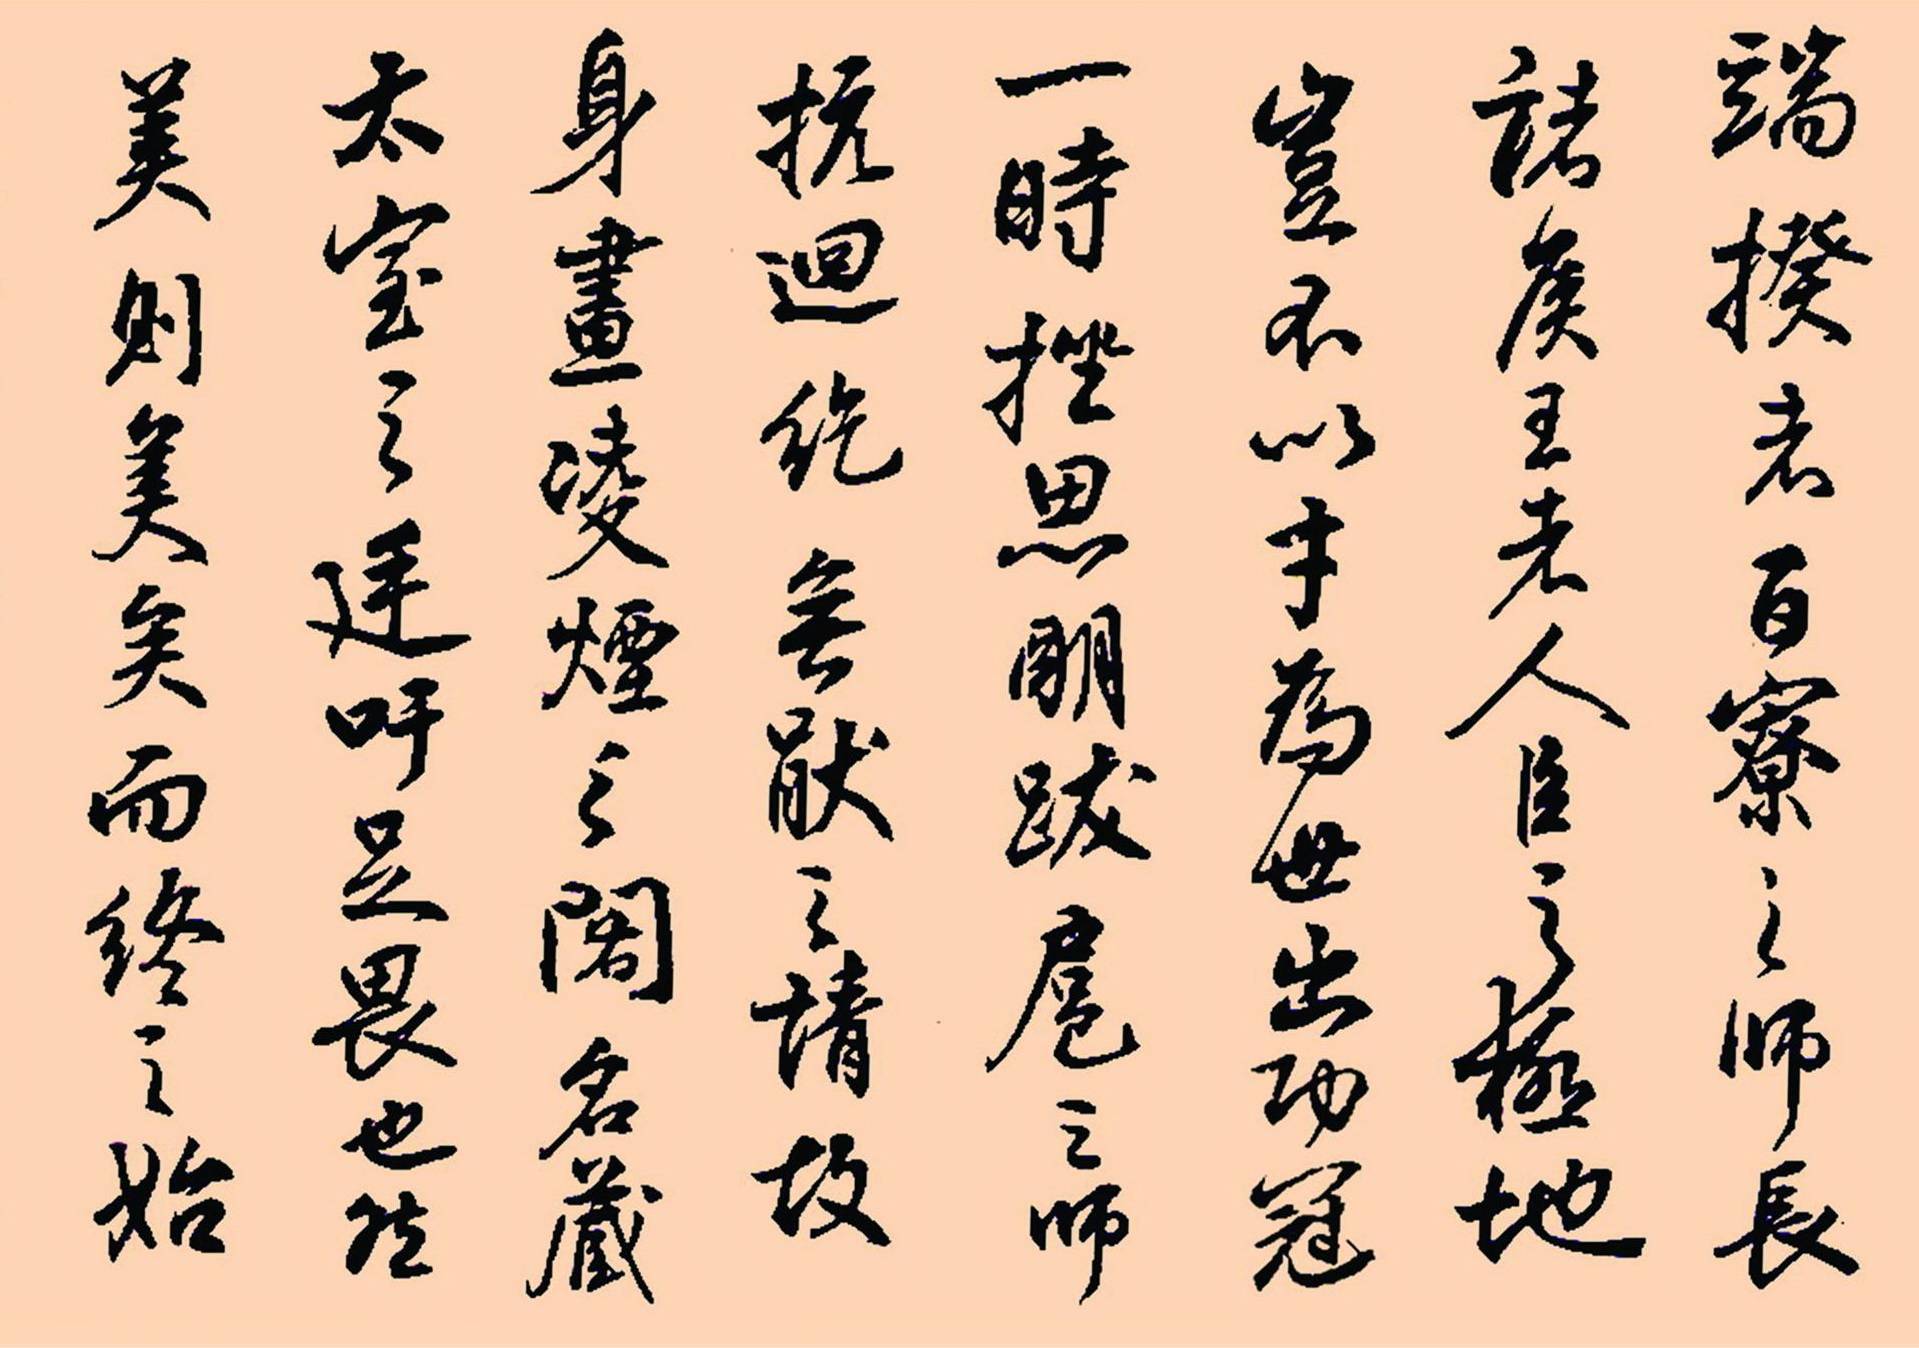 端揆者百寮之師長
諸侯王者人臣之極地
豈不以才為世出功冠
一時挫思明跋扈之師
抗迴紇無猒之請故
身畫凌煙之閣名藏
太室之廷吁足畏也然
美則美矣而終之始